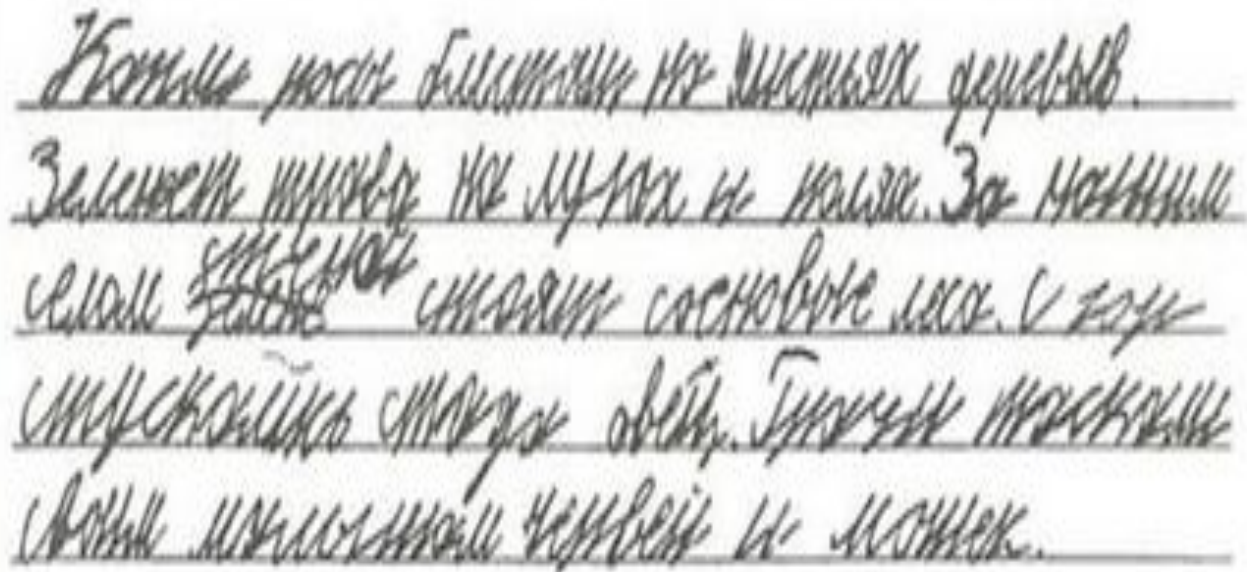 Капли росы блистали на листьях деревьев.
Зеленеет трава на лугах и полях. За нашим
селом стеной стоят сосновые леса. С гор
спускались стада овец. Грачи таскали
своим малышам червей и мошек.